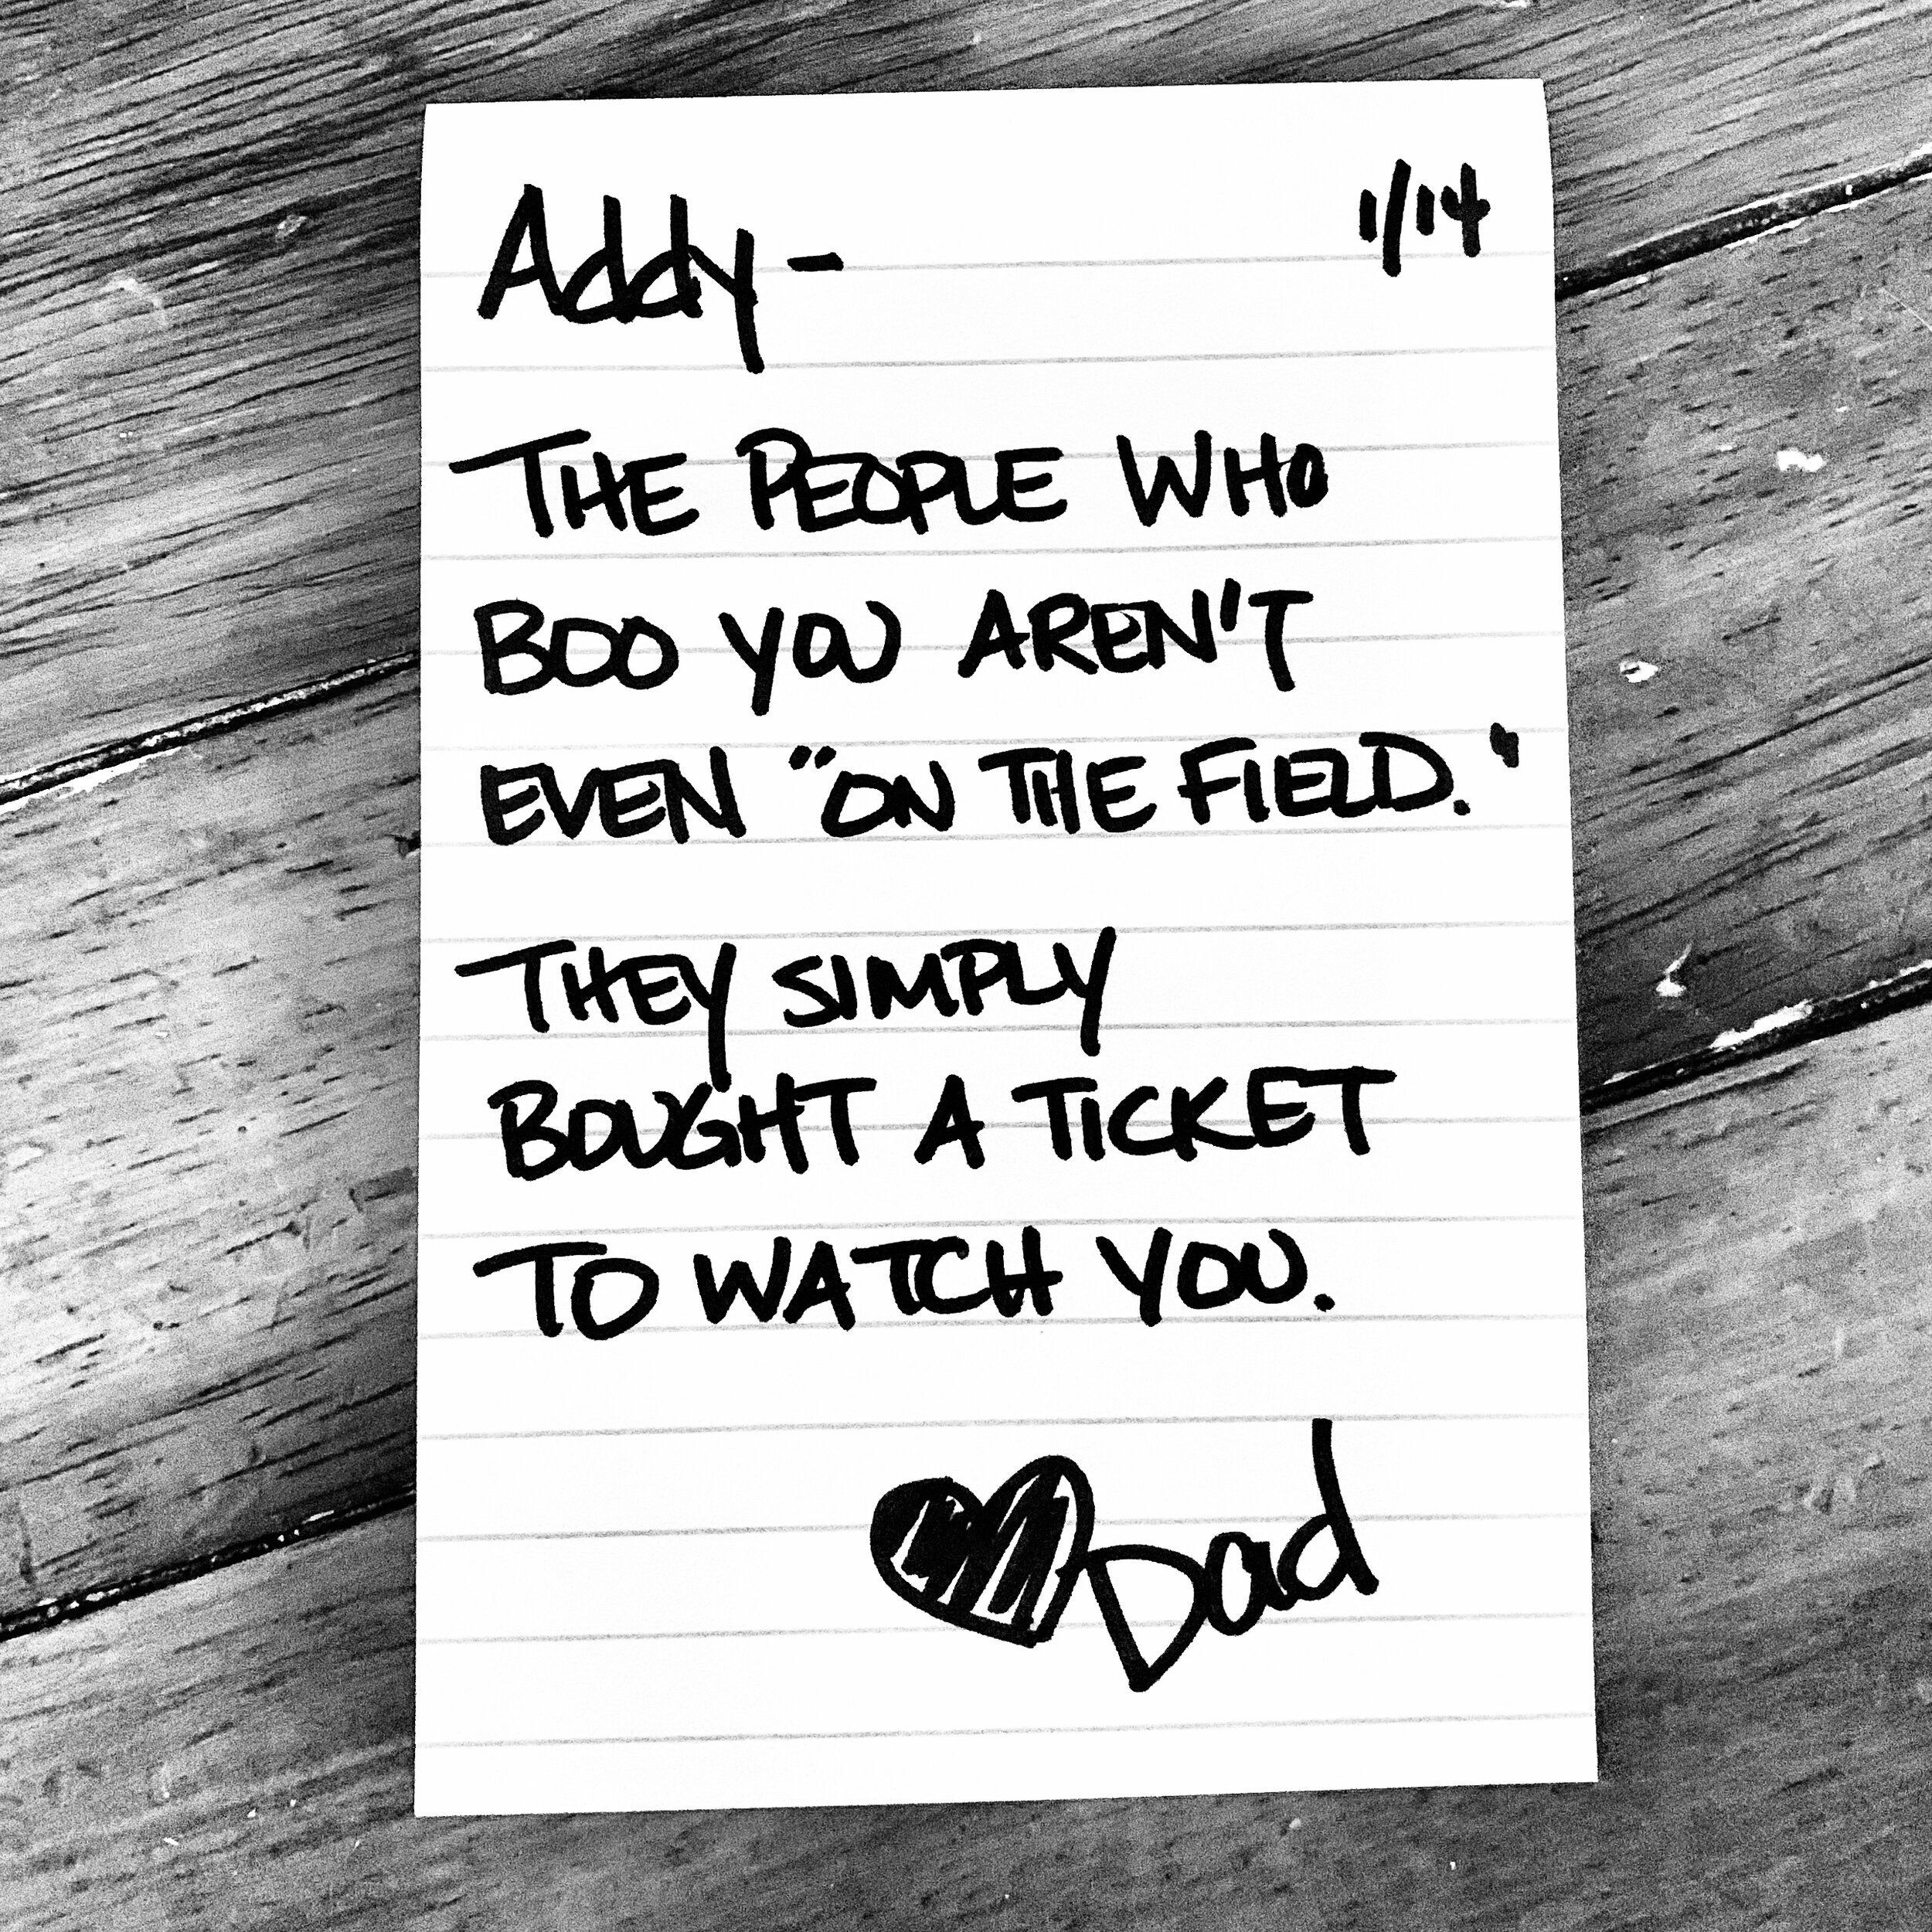 Addy- 1/14
THE PEOPLE WHO
BOO YOU AREN'T
EVEN "ON THE FIELD."
THEY SIMPLY
BOUGHT A TICKET
TO WATCH YOU.
Dad